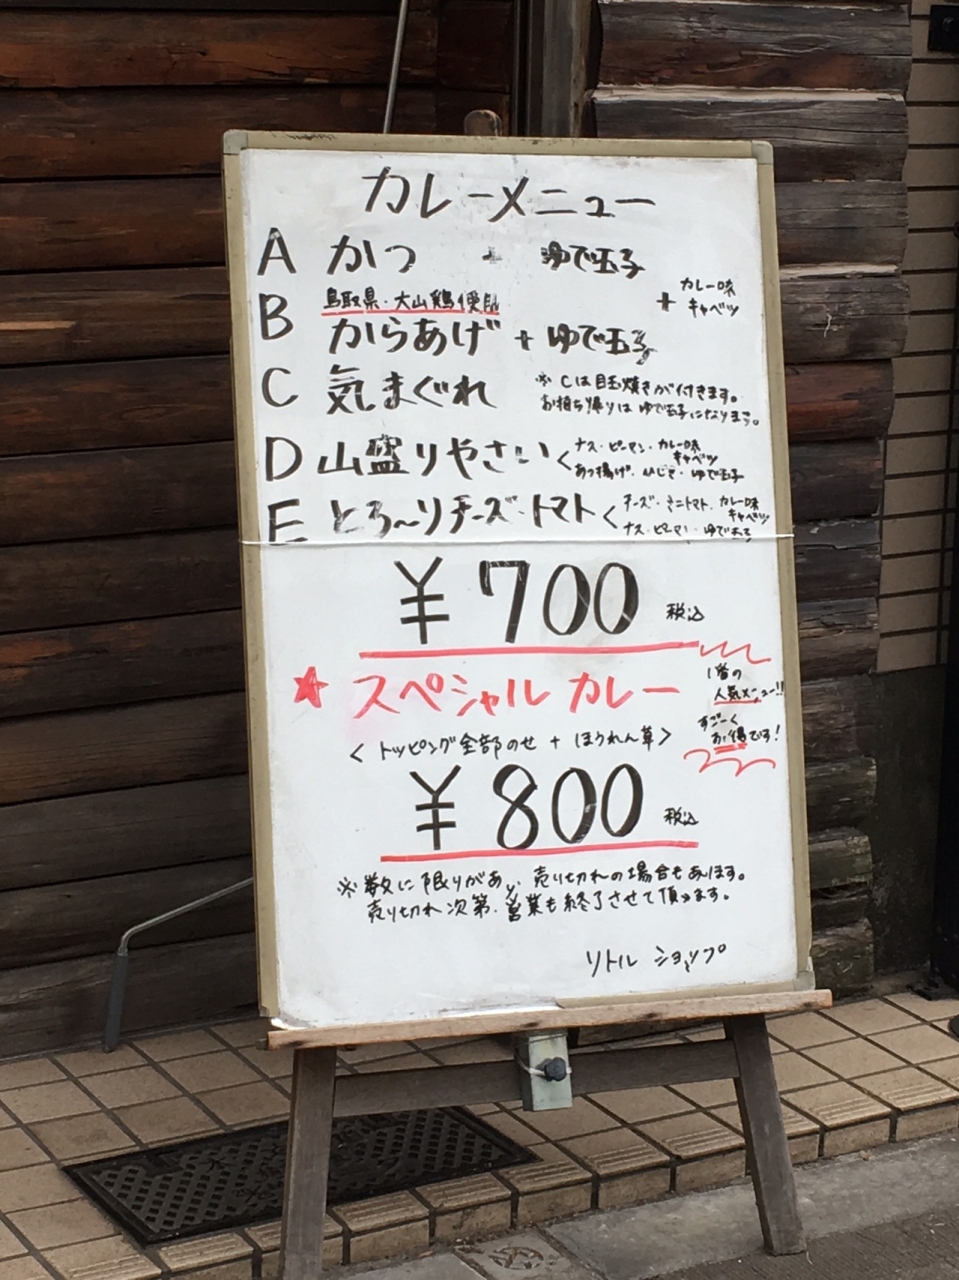 カレーメニュー
A かつ + ゆで玉子
+ カレー味
キャベツ
鳥取県・大山鶏使用
B からあげ + ゆで玉子
C 気まぐれ
※Cは目玉焼きが付きます。
お持ち帰りはゆで玉子になります。
D 山盛りやさい<
ナス・ピーマン・カレー味
キャベツ
あつ揚げ・ひじき・ゆで玉子
E とろ〜りチーズ・トマト<
チーズ・ミニトマト・カレー味
キャベツ
ナス・ピーマン・ゆで玉子
¥700 税込
★ スペシャル カレー
1番の
人気メニュー!!
すごーく
お得です!
<トッピング全部のせ + ほうれん草>
¥800 税込
※数に限りがあり、売り切れの場合もあります。
売り切れ次第、営業も終了させて頂きます。
リトル ショップ